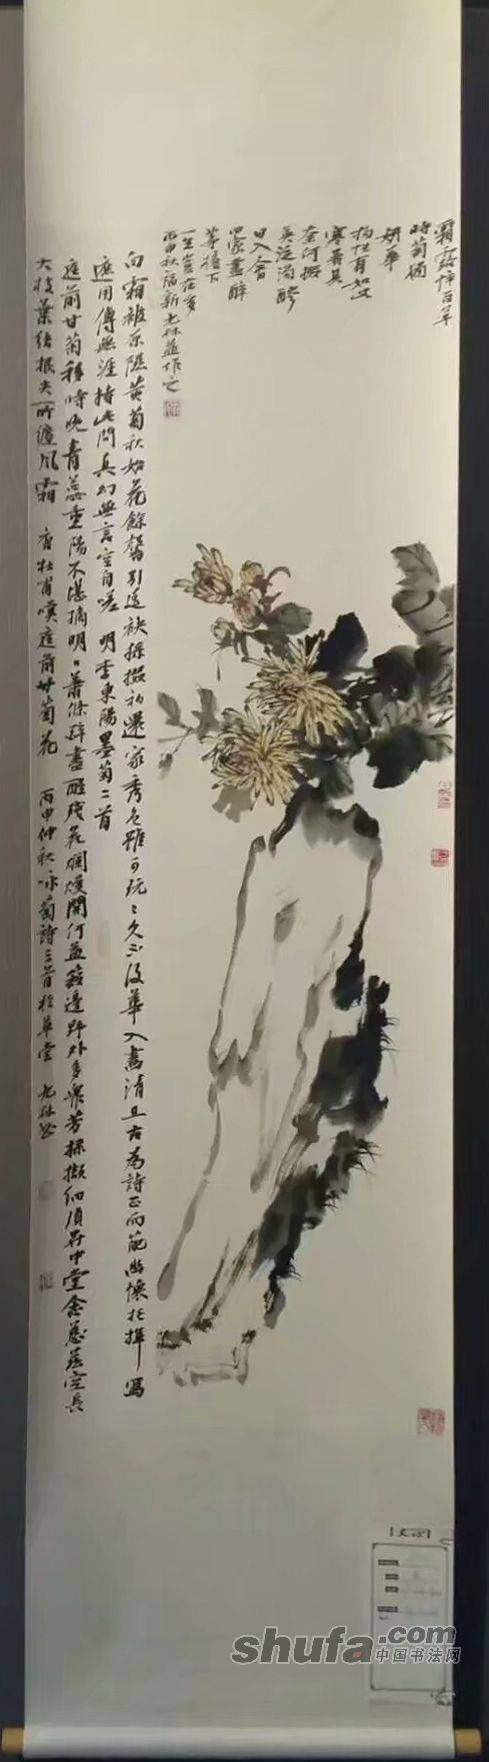 霜露悴百草
時菊獨
妍華
物性有如此
寒暑其
奈何掇
英泛濁醪
日入會
田家盡醉
茅檐下
一生豈在多
丙申秋
白霜被原隰黄菊秋始花餘馨引遥袂採掇初還家秀色雖可玩玩久亦後華入畫清且古為詩正而葩幽懷托揮寫
遮用傳無涯持此問真幻無言空自嗟 明李東陽墨菊二首
庭前甘菊移時晚青蕊重陽不堪摘明日蕭條醉盡醒殘花爛熳開何益籬邊野外多衆芳採擷細瑣升中堂念兹空長
大枝葉結根失所纏風霜 唐杜甫嘆庭前甘菊花 丙申仲秋詠菊詩三首於草堂
shufa.com
中国书法网